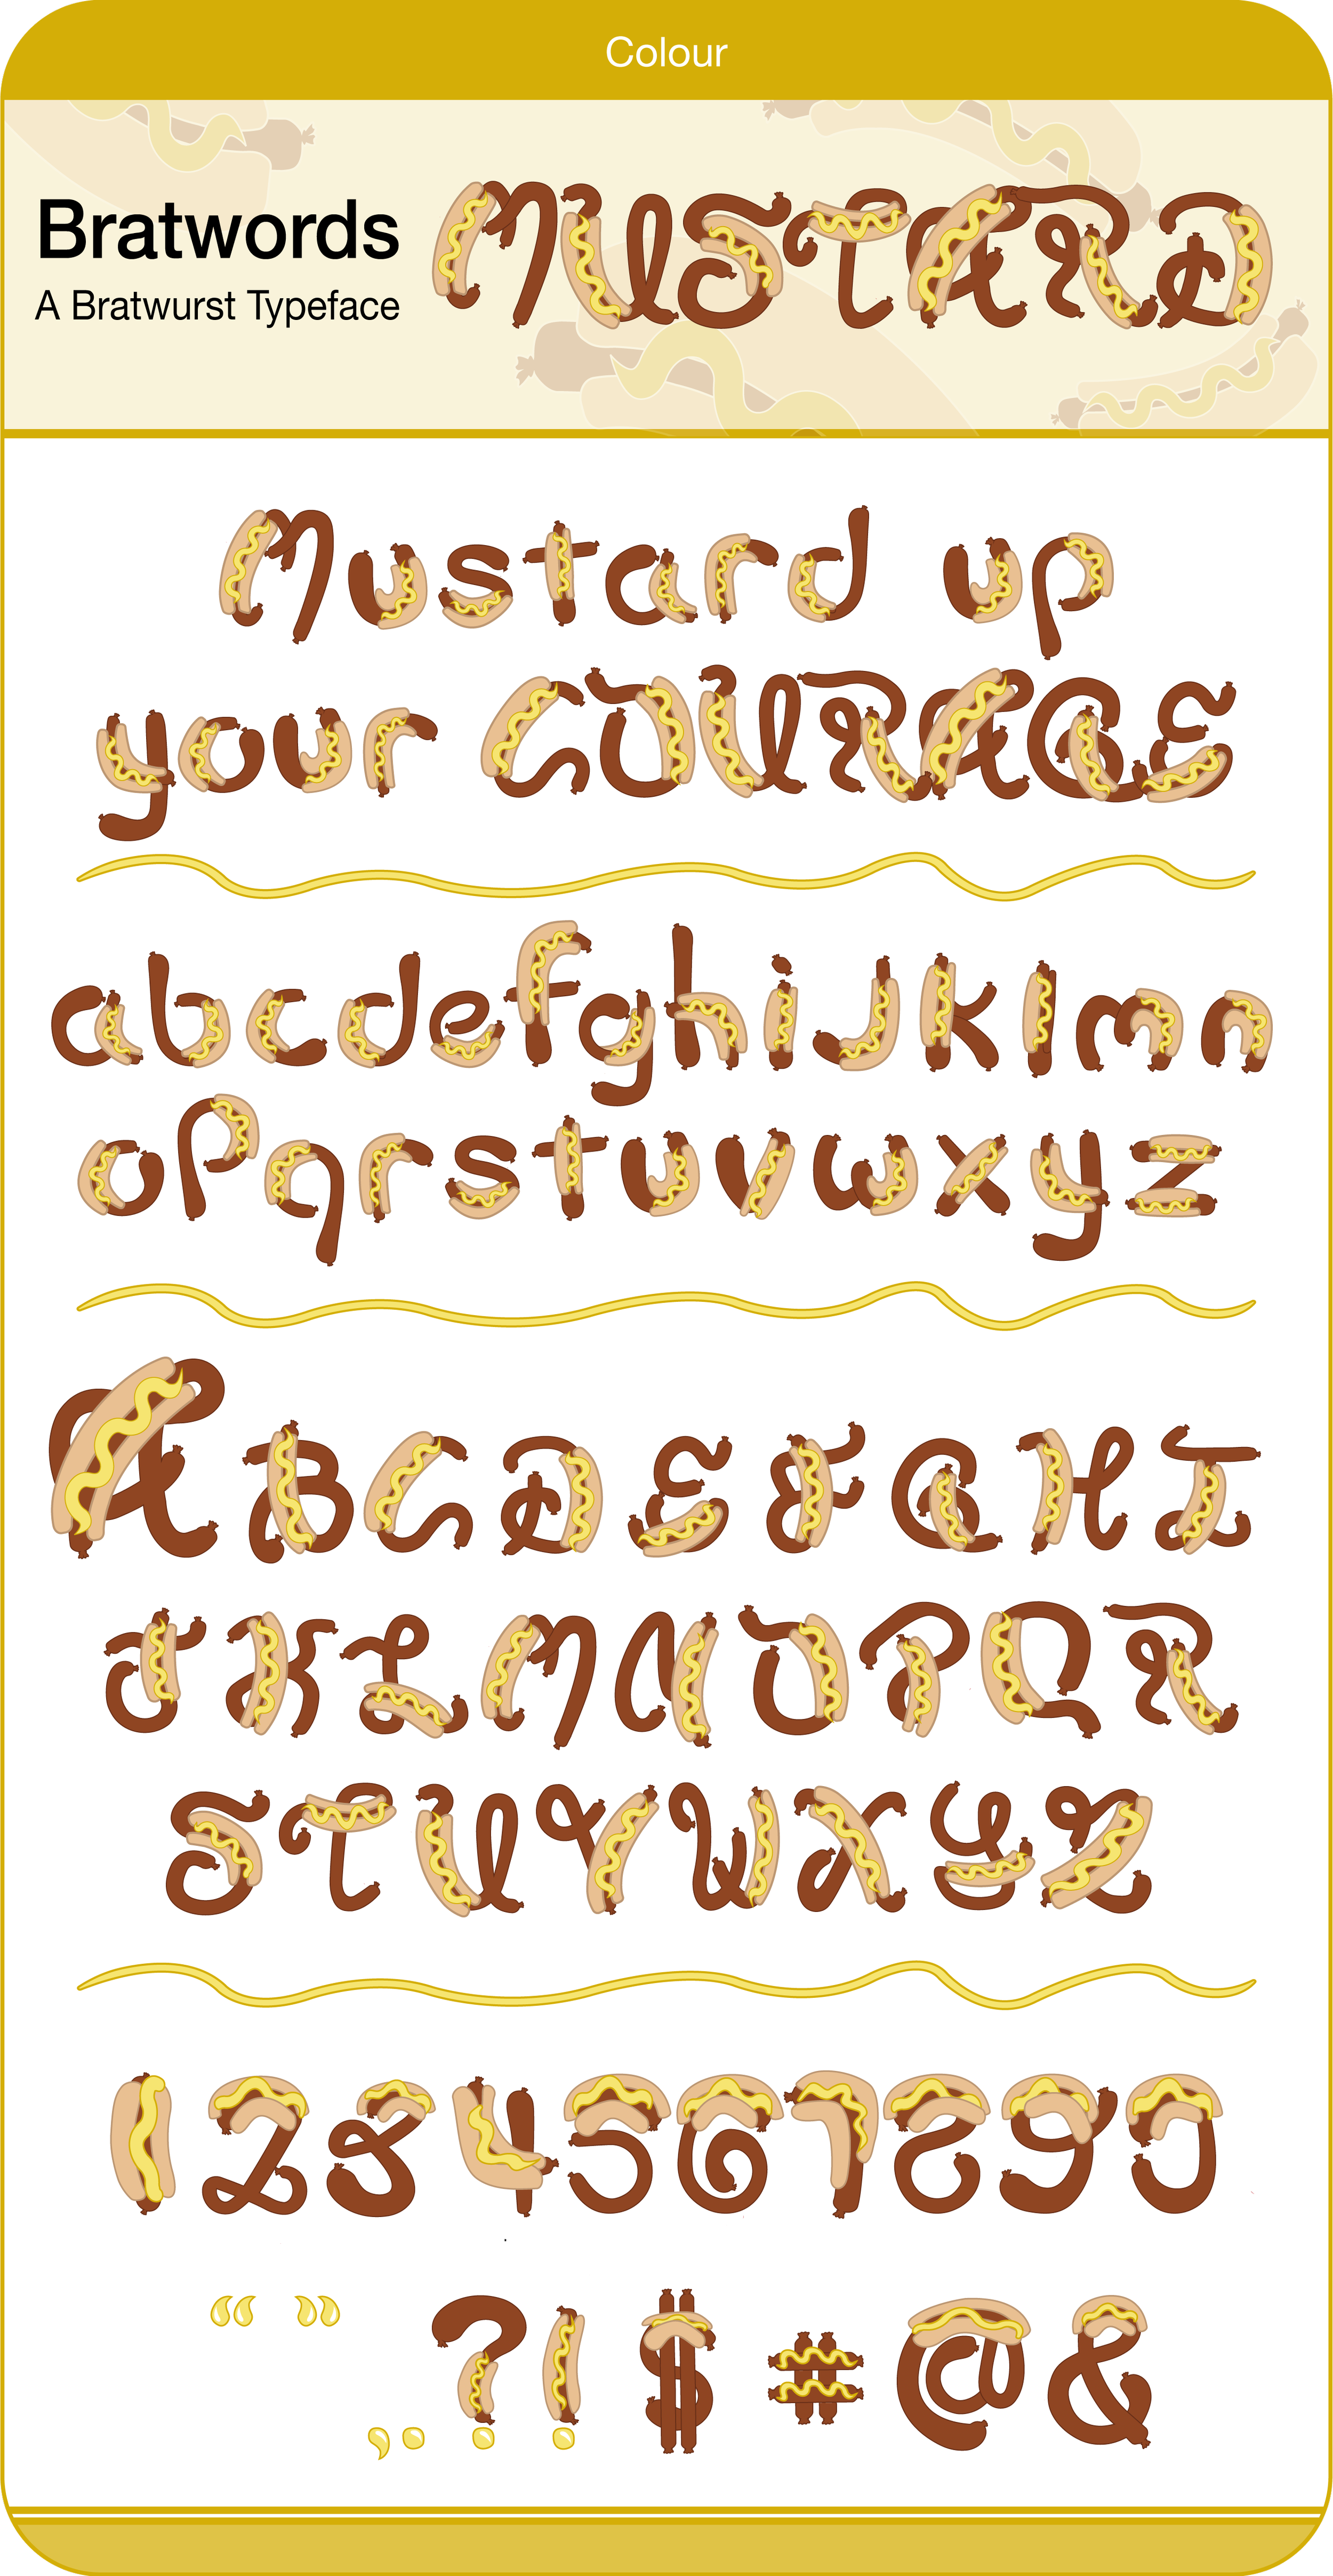 Colour
Bratwords
A Bratwurst Typeface
MUSTARD
Mustard up
your COURAGE
abcdefghijklmn
opqrstuvwxyz
ABCDEFGHI
JKLMNOPQR
STUVWXYZ
1234567890
“ ” , . ? ! $ # @ &